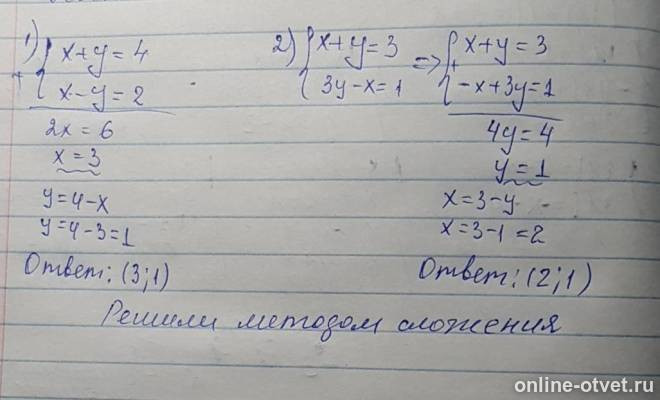 1) { x+y=4
+ { x-y=2
2x=6
x=3
y=4-x
y=4-3=1
Ответ: (3;1)
2) { x+y=3 => { x+y=3
{ 3y-x=1 + { -x+3y=1
4y=4
y=1
x=3-y
x=3-1=2
Ответ: (2;1)
Решили методом сложения
online-otvet.ru